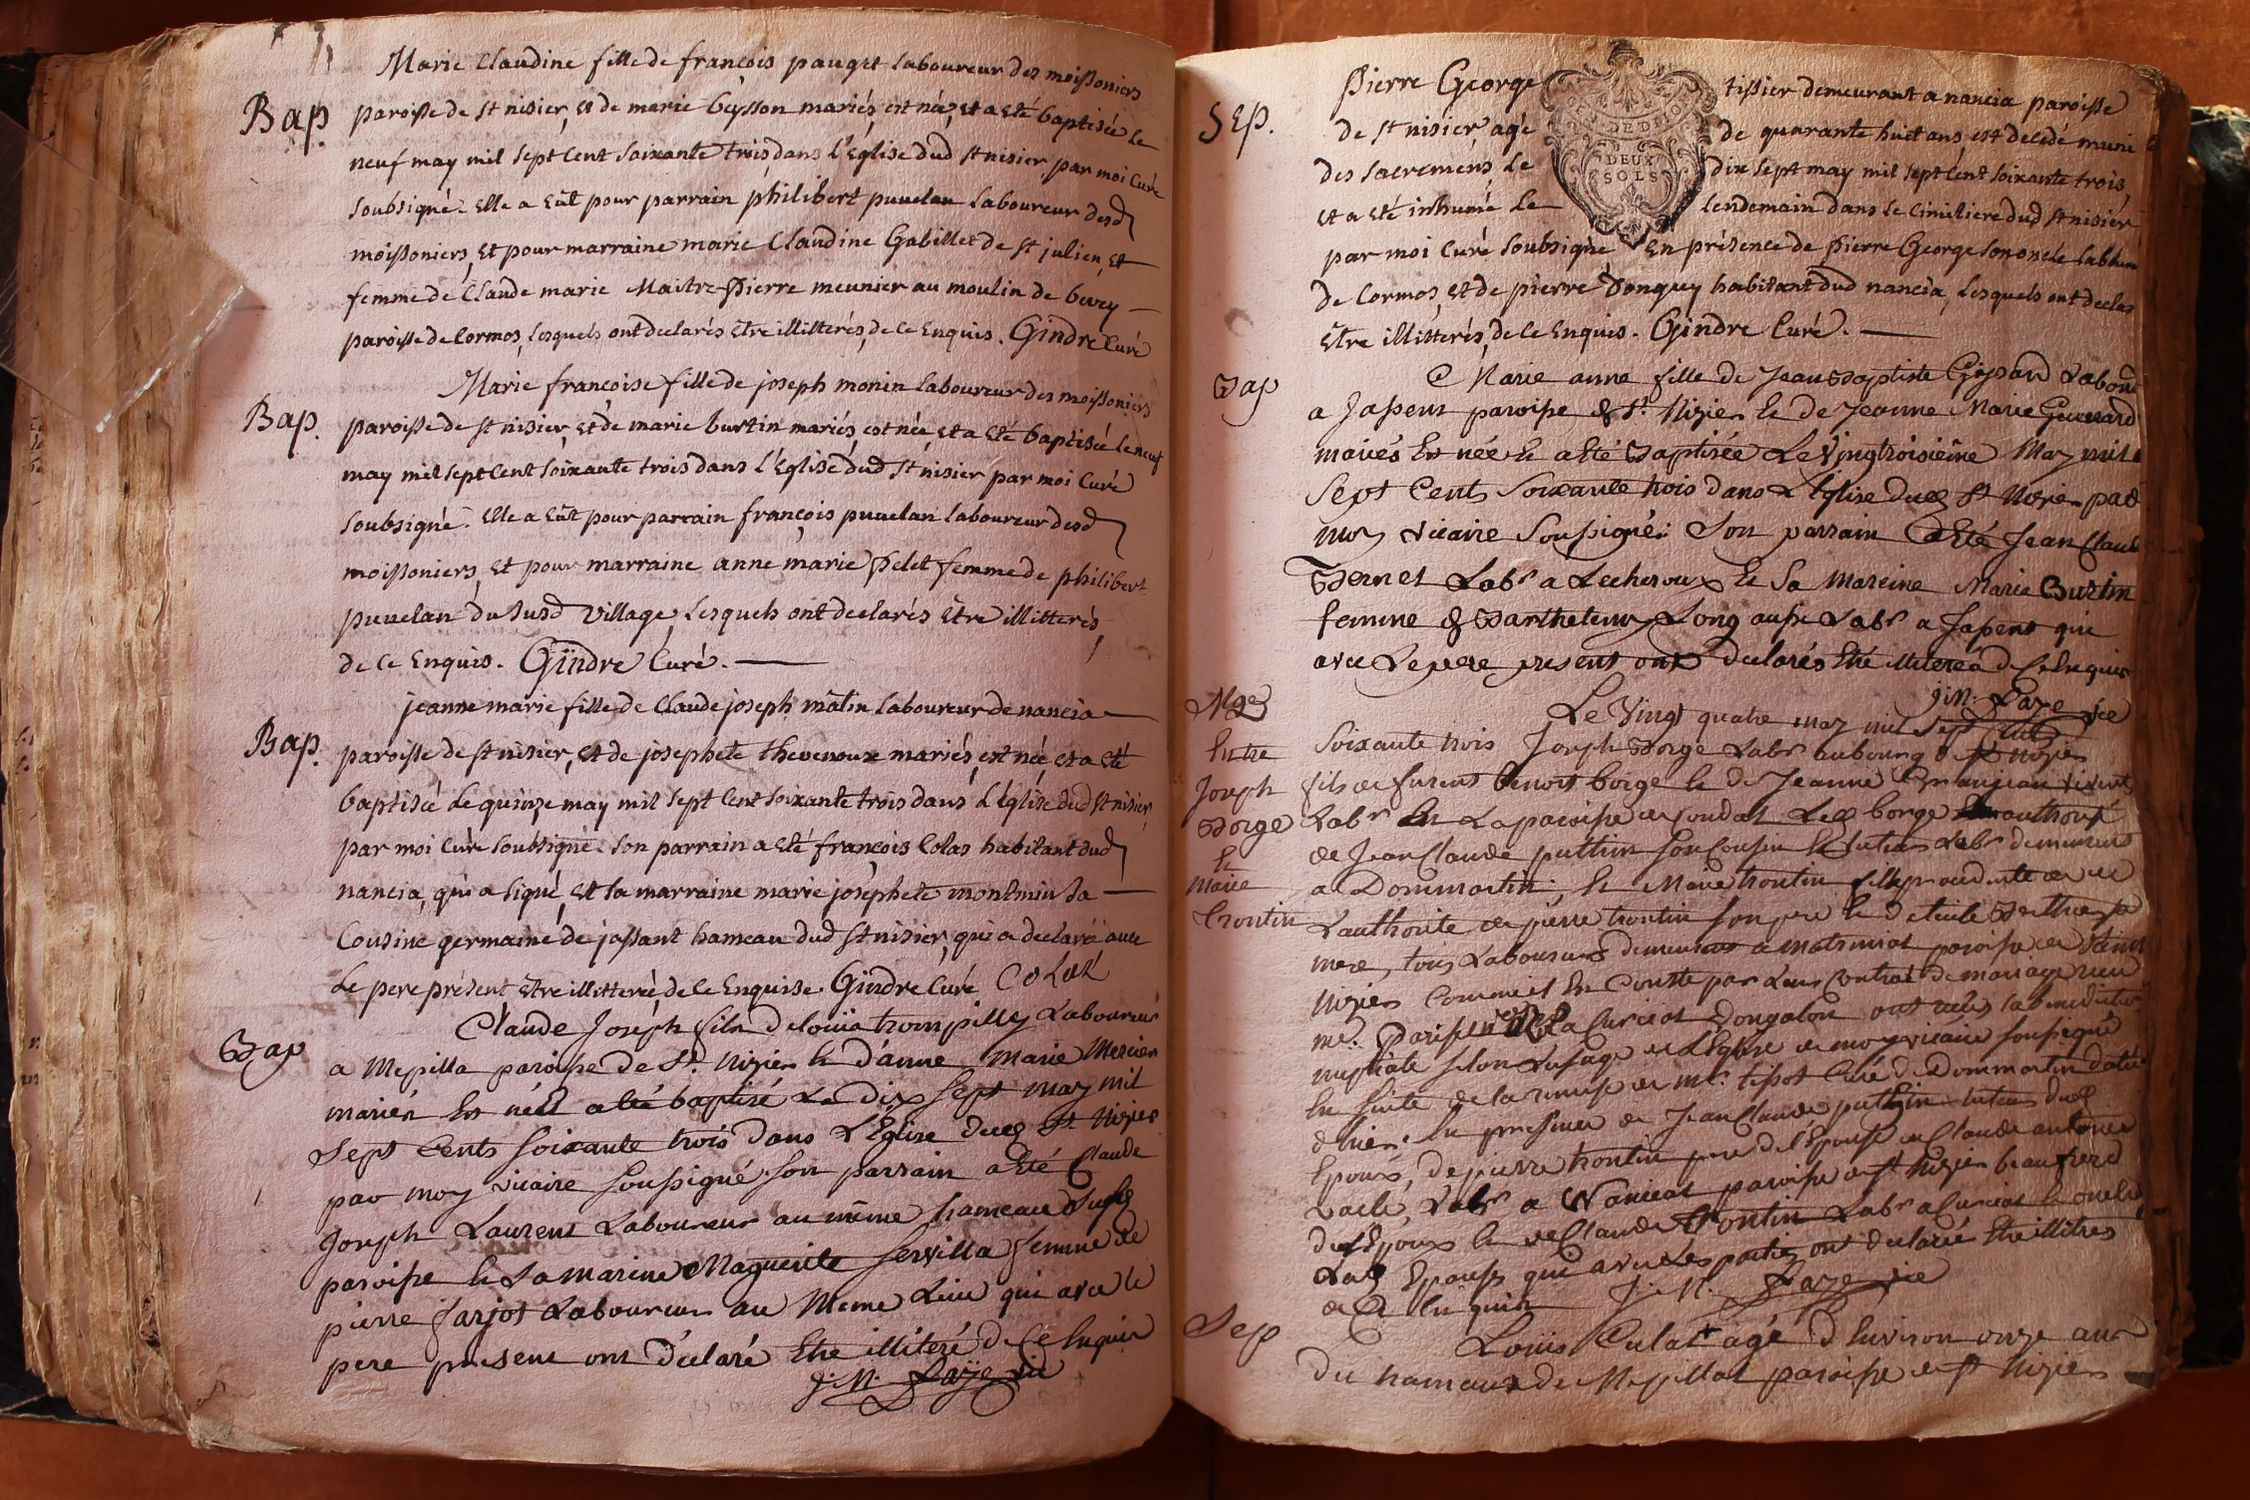 Marie Claudine fille de françois pauget laboureur des moissoniers
Bap. paroisse de st nisier, et de marie beysson mariés, est née, et a eté baptisée le
neuf may mil sept cent soixante trois, dans l'Eglise dud st nisier, par moi Curé
soubsigné. Elle a eût pour parrain philibert puvelan laboureur desd
moissoniers, et pour marraine marie Claudine Gabillet de st julien, et
femme de Claude marie Maitre-Pierre meunier au moulin de
paroisse de Cormos, lesquels ont declarés être illitterés, de ce Enquis. Gindre Curé
Marie françoise fille de joseph monin laboureur des moissoniers
Bap. paroisse de st nisier, et de marie burtin mariés, est née, et a eté baptisée le neuf
may mil sept cent soixante trois dans l'Eglise dud st nisier par moi Curé
soubsigné. Elle a eût pour parrain françois puvelan laboureur desd
moissoniers, et pour marraine anne marie Pelet femme de philibert
puvelan du susd village, lesquels ont declarés être illitterés,
de ce Enquis. Gindre Curé.
jeanne marie fille de Claude joseph mâtin laboureur de nancia
Bap. paroisse de st nisier, et de josephete thevenoux mariés, est née, et a eté
baptisée le quinze may mil sept cent soixante trois dans l'Eglise dud st nisier,
par moi Curé soubsigné. son parrain a eté françois Colas habitant dud
nancia, qui a signé, et la marraine marie josephete montmin sa
Cousine germaine de jassant hameau dud st nisier, qui a declaré avec
le pere présent, être illitteré, de ce Enquise. Gindre Curé Colas
Claude Joseph fils de loüis trompille Laboureur
Bap a Mepilla paroisse de St. Nizier & d'anne Marie Mercier
mariés est né & a eté baptisé Le Dix sept may mil
sept Cents soixante trois dans L'Eglise dud St Nizier
par moy vicaire soussigné. son parrain a eté Claude
Joseph Laurent Laboureur au même hameau
paroisse & sa mareine Maguerite Servilla femme de
pierre farjot Laboureur au Meme Lieu qui avec le
pere present ont déclaré Etre illiteré de Ce Enquis
J. M. Faye vic
Pierre George tissier demeurant a nancia paroisse
Sep. de st nisier agé de quarante huit ans, est decedé muni
des sacremens le dix sept may mil sept cent soixante trois
DEUX
SOLS
et a eté inhumé le lendemain dans le Cimitiere dud st nisier
par moi Curé soubsigné En présence de Pierre George son oncle
de Cormos, et de pierre Donguy habitant dud nancia, lesquels ont
être illitterés, de ce Enquis. Gindre Curé.
Bap Marie anne fille de Jean Baptiste
a Jassent paroisse de St. Nizier & de Jeanne Marie
mariés Est née & a eté Baptisée Le Vingtroisième May mil
Sept Cents Soixante trois dans L'Eglise dud St Nizier par
moy vicaire Soussigné. Son parrain a Eté Jean Claude
Bernet Labr a Lecheroux & Sa mareine Marie Burtin
femme de Barthelemy Long aussi Labr a Jassent qui
avec Le pere present ont declarés Etre illiterés de Ce Enquis
J. M. Faye vic
Mge Le Vingt quatre may mil Sept Cents
Entre Soixante trois Joseph Borge Labr au bourg de St Nizier
Joseph fils de furent Benoit borge & de Jeanne vivants
Borge Labr En La paroisse de Led borge authorisé
& de Jean Claude puttin son Cousin & tuteur Labr demeurant
Marie a Dommartin, & Marie trontin fille
trontin L'authorité de pierre trontin son pere &
mere, tous Laboureurs demeurant a paroisse de Saint
Nizier Comme il En Conste par Leur Contrat de mariage reçu
me. ont reçus la benediction
nuptiale selon L'usage de L'Eglise de moy vicaire soussigné
En suite de la remise de mr. tissot Curé de Dommartin
d'hier. En presence de Jean Claude puttin tuteur dud
Epoux, de pierre trontin pere de l'Epouse de Claude antoine
Labr a paroisse de St Nizier beaufrere
de l'Epoux & de Claude trontin Labr a Curciat & oncle
Lad Epouse qui avec Les parties ont declaré Etre illitres
de Ce Enquis J. M. Faye vic
Sep Loüis Culat agé d'Environ onze ans
du hameau de Mepillat paroisse de St Nizier